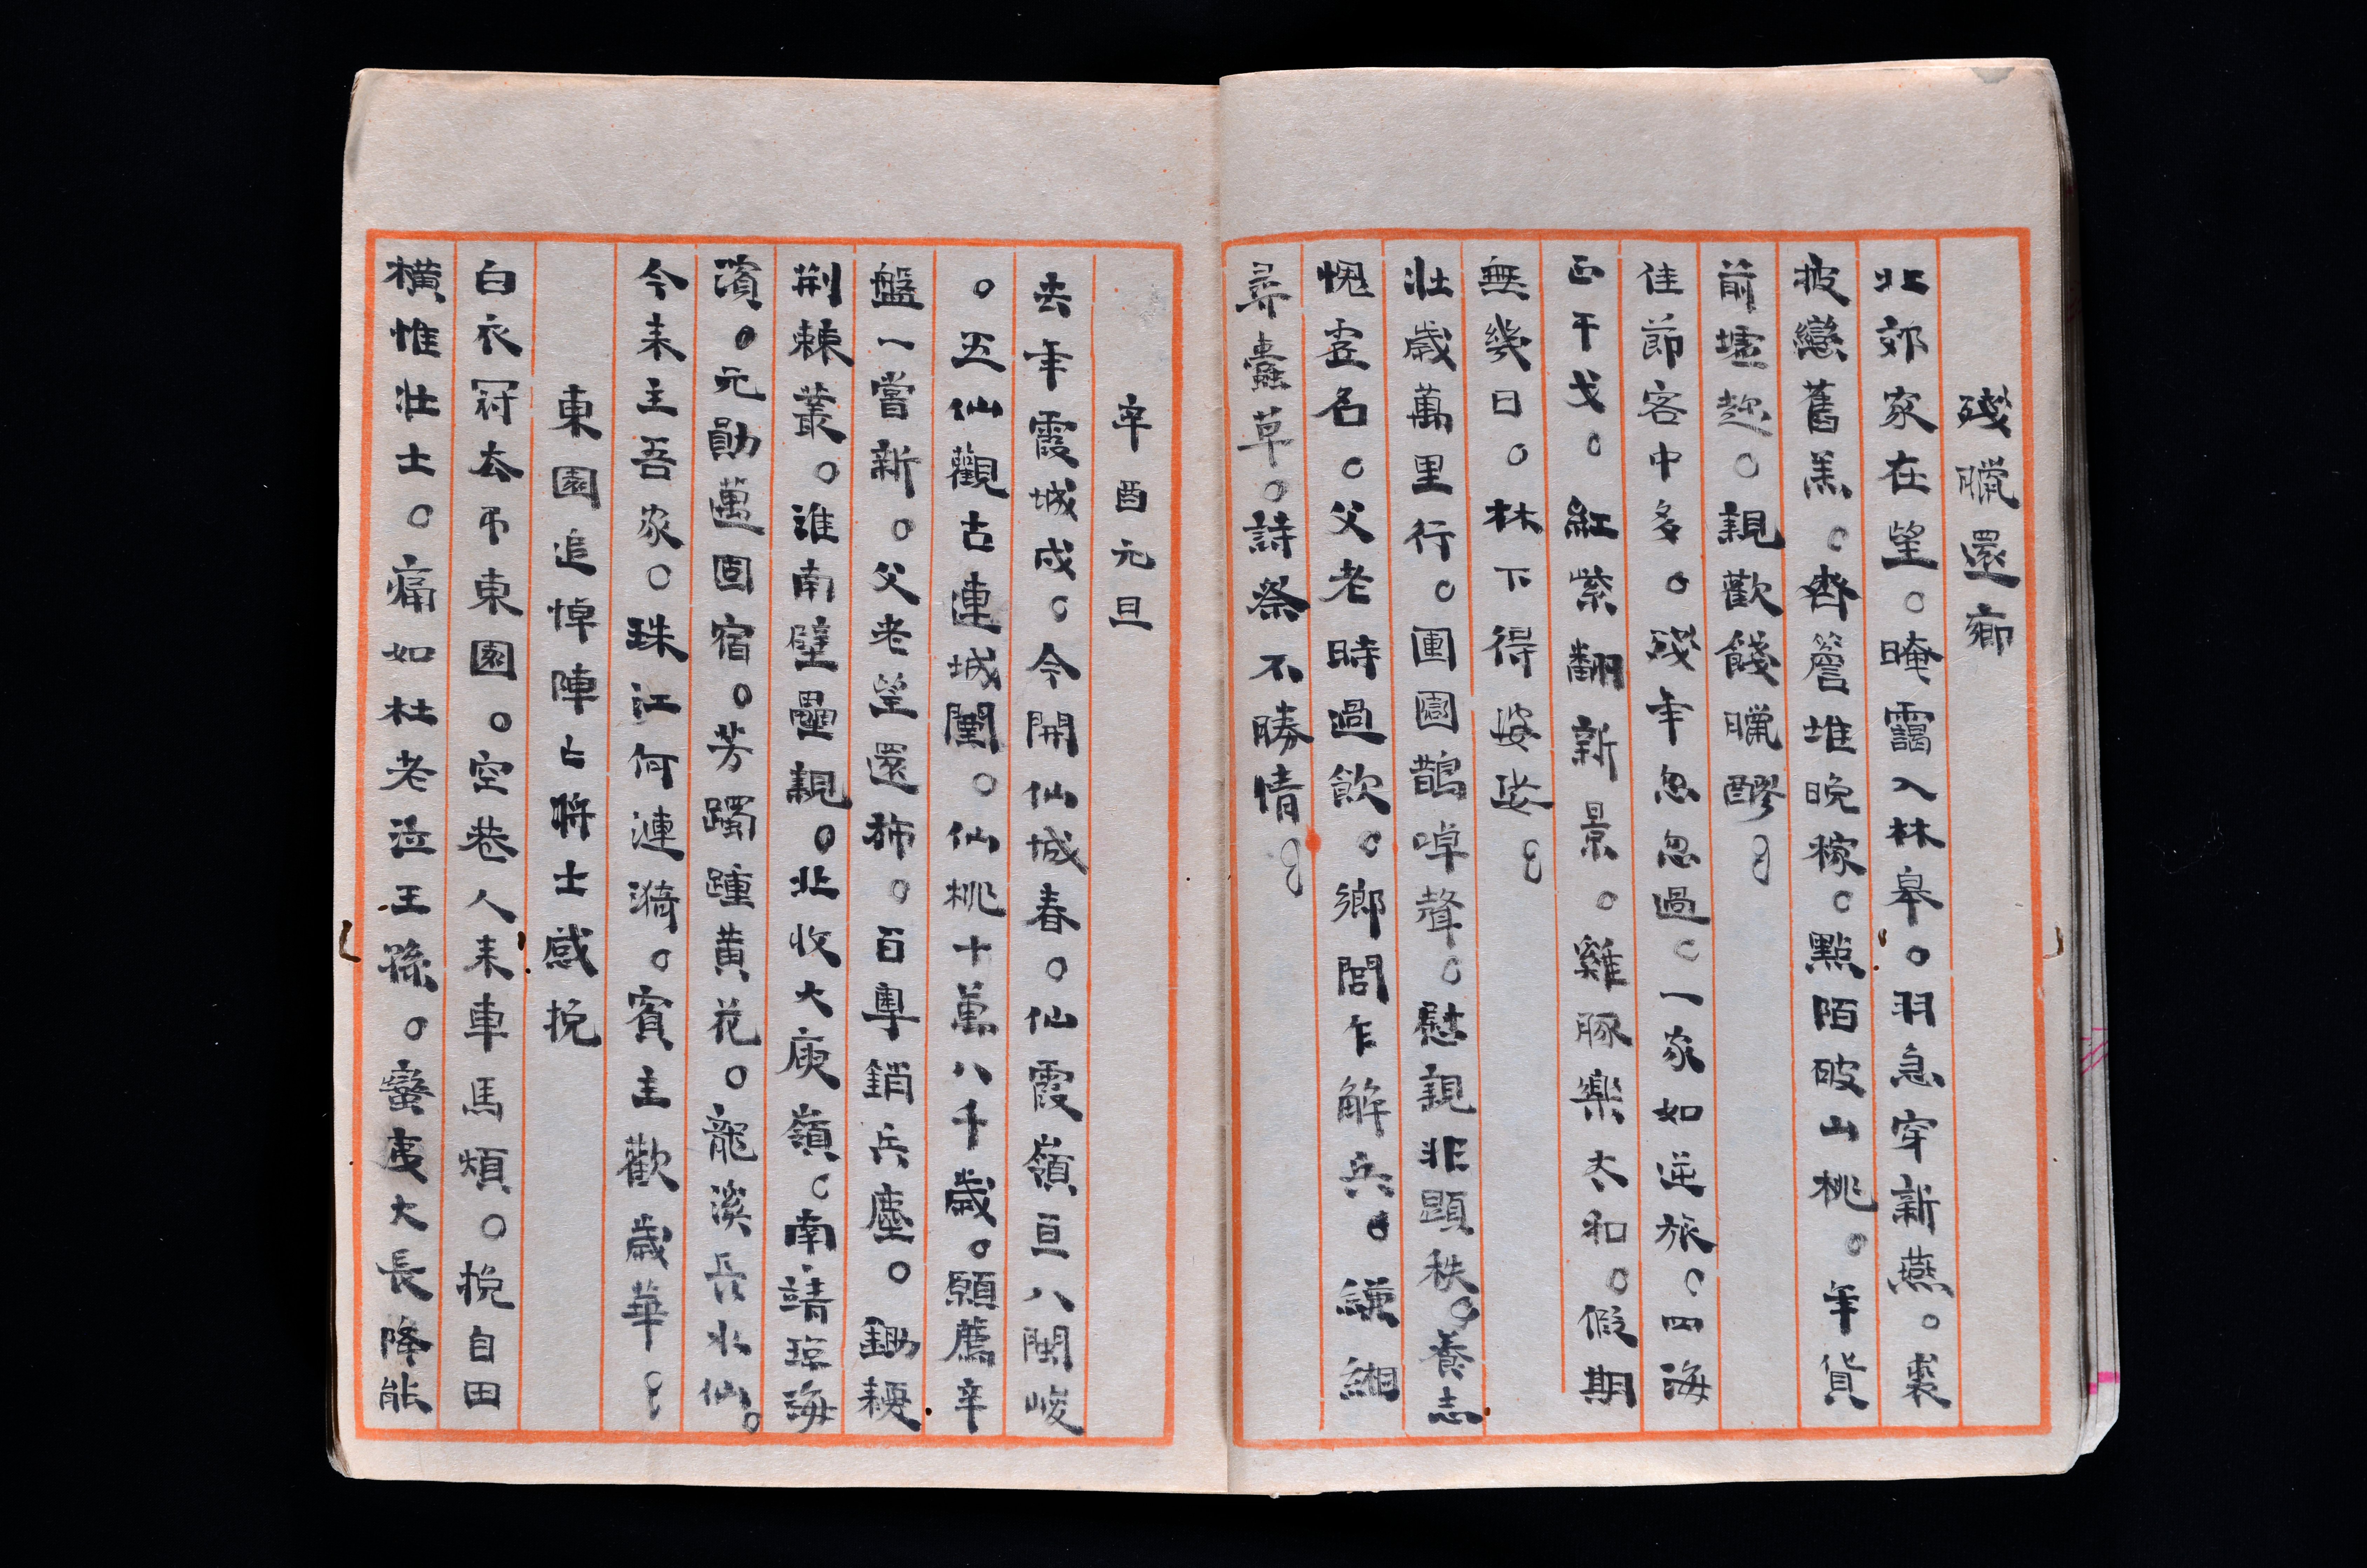 殘臘還鄉
北郊家在望。晻靄入林皋。羽急穿新燕。裘
披戀舊羔。齊簷堆晚稼。點陌破山桃。年貨
前墟趂。親歡餞臘醪。
佳節客中多。殘年忽忽過。一家如逆旅。四海
正干戈。紅紫翻新景。雞豚樂太和。假期
無幾日。林下得婆娑。
壯歲萬里行。團圓鵲噪聲。慰親非顯秩。養志
愧虛名。父老時過飲。鄉閭乍解兵。縑緗
尋蠹草。詩祭不勝情。
辛酉元旦
去年霞城戍。今開仙城春。仙霞嶺亘八閩峻
。五仙觀古連城闉。仙桃十萬八千歲。願薦辛
盤一嘗新。父老望還柿。百粵銷兵塵。鋤耰
荆棘叢。淮南壁壘親。北收大庾嶺。南靖瓊海
濱。元勛邁固宿。芳躅踵黄花。龍溪長水仙。
今来主吾家。珠江何漣漪。賓主歡歲華。
東園追悼陣亡將士感挽
白衣冠去吊東園。空巷人来車馬煩。挽自田
橫惟壯士。痛如杜老泣王孫。蠻夷大長降能